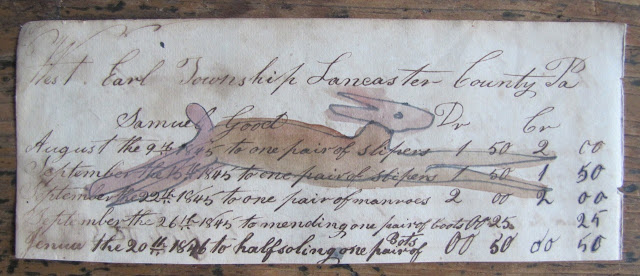 West. Earl Township Lancaster County Pa
Samuel Good Dr Cr
August the 9th 1845 to one pair of slipers 1 50 2 00
September the 15th 1845 to one pair of slipers 1 50 1 50
September the 22th 1845 to one pair of monroes 2 00 2 00
September the 26th 1845 to mending one pair of boots 00 25 25
Jenuua the 20th 1846 to halfsoling one pair of Bots 00 50 00 50